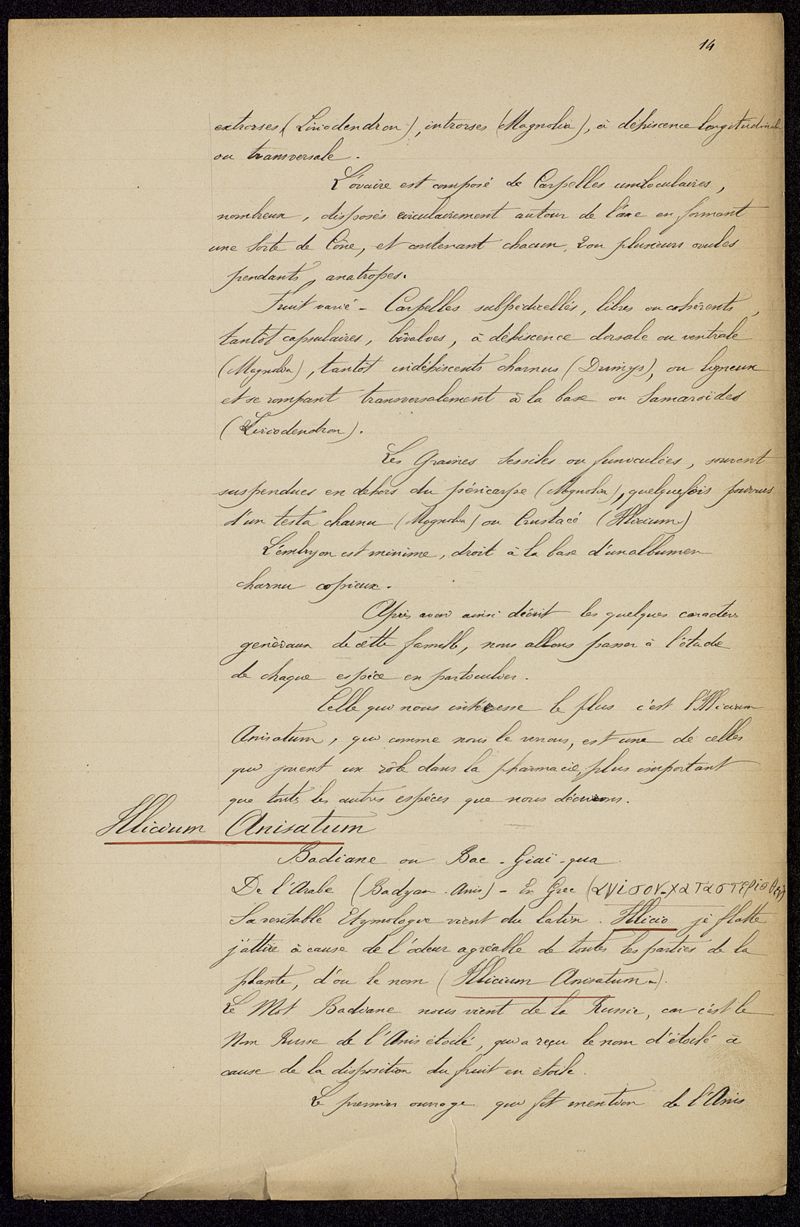 14
extrorses (Liriodendron), introrses (Magnolia), à déhiscence longitudinale
ou transversale.
L'ovaire est composé de Carpelles uniloculaires,
nombreux, disposés circulairement autour de l'axe en formant
une sorte de Cône, et contenant chacun, 2 ou plusieurs ovules
pendants, anatropes.
Fruit varié - Carpelles subpédicellés, libres ou cohérents,
tantôt capsulaires, bivalves, à déhiscence dorsale ou ventrale
(Magnolia), tantôt indéhiscents charnus (Drimys), ou ligneux
et se rompant transversalement à la base ou Samaroïdes
(Liriodendron).
Les Graines sessiles ou funiculées, souvent
suspendues en dehors du péricarpe (Magnolia), quelquefois pourvues
d'un testa charnu (Magnolia) ou Crustacé (Illicium)
L'embryon est minime, droit à la base d'un albumen
charnu copieux.
Après avoir ainsi décrit les quelques caractères
généraux de cette famille, nous allons passer à l'étude
de chaque espèce en particulier.
Celle qui nous intéresse le plus c'est l'Illicium
Anisatum, qui comme nous le verrons, est une de celles
qui jouent un rôle dans la pharmacie, plus important
que toutes les autres espèces que nous décrirons.
Illicium Anisatum
Badiane ou Bac-Giaï-qua
De l'Arabe (Badyan Anis) - En Grec (ανισον-χατα
Sa véritable Etymologie vient du latin. Illicio je flatte
j'attire à cause de l'odeur agréable de toutes les parties de la
plante, d'où le nom (Illicium Anisatum).
Le Mot Badiane nous vient de la Russie, car c'est le
Nom Russe de l'Anis étoilé, qui a reçu le nom d'étoilé à
cause de la disposition du fruit en étoile.
Le premier ouvrage qui fit mention de l'Anis